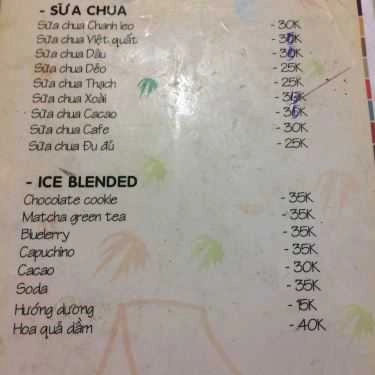 - SỮA CHUA
Sữa chua Chanh leo - 30K
Sữa chua Việt quất - 30K
Sữa chua Dâu - 30K
Sữa chua Dẻo - 25K
Sữa chua Thạch - 25K
Sữa chua Xoài
Sữa chua Cacao
Sữa chua Cafe - 30K
Sữa chua Đu đủ - 25K
- ICE BLENDED
Chocolate cookie - 35K
Matcha green tea - 35K
Bluelerry - 35K
Capuchino - 35K
Cacao - 30K
Soda - 35K
Hướng dương - 15K
Hoa quả dầm - 40K